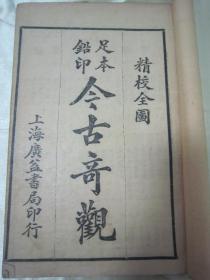 精校全圖
足本
鉛印
今古奇觀
上海廣益書局印行